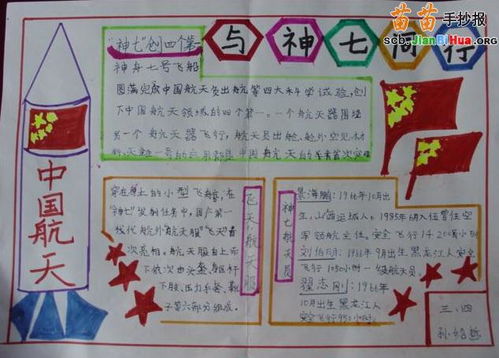 苗苗手抄报
scb.JianBiHua.org
与神七同行
"神七"创四个第一
神舟七号飞船
圆满完成中国航天员出舱第四大科学试验,创
下中国航天领域的四个第一。一个航天器围绕
另一个航天器飞行,航天员出舱,舱外空见材
中国航天
飞天舱航天服
穿在身上的小型飞船,在
"神七"发射任务中,国产第一
代舱外航天服"飞天"首
次亮相。航天服由上下
下肢、压力手套、靴
子等六部分组成。
神七航天员
景海鹏:1966年10月出
生,山西运城人。1985年6月入伍曾任空
军领航主任,安全飞行1200小时
刘伯明:1966年9月出生黑龙江人安全
飞行1050小时一级航天员。
翟志刚:1966年
10月出生黑龙江人
安全飞行950小时
三、四